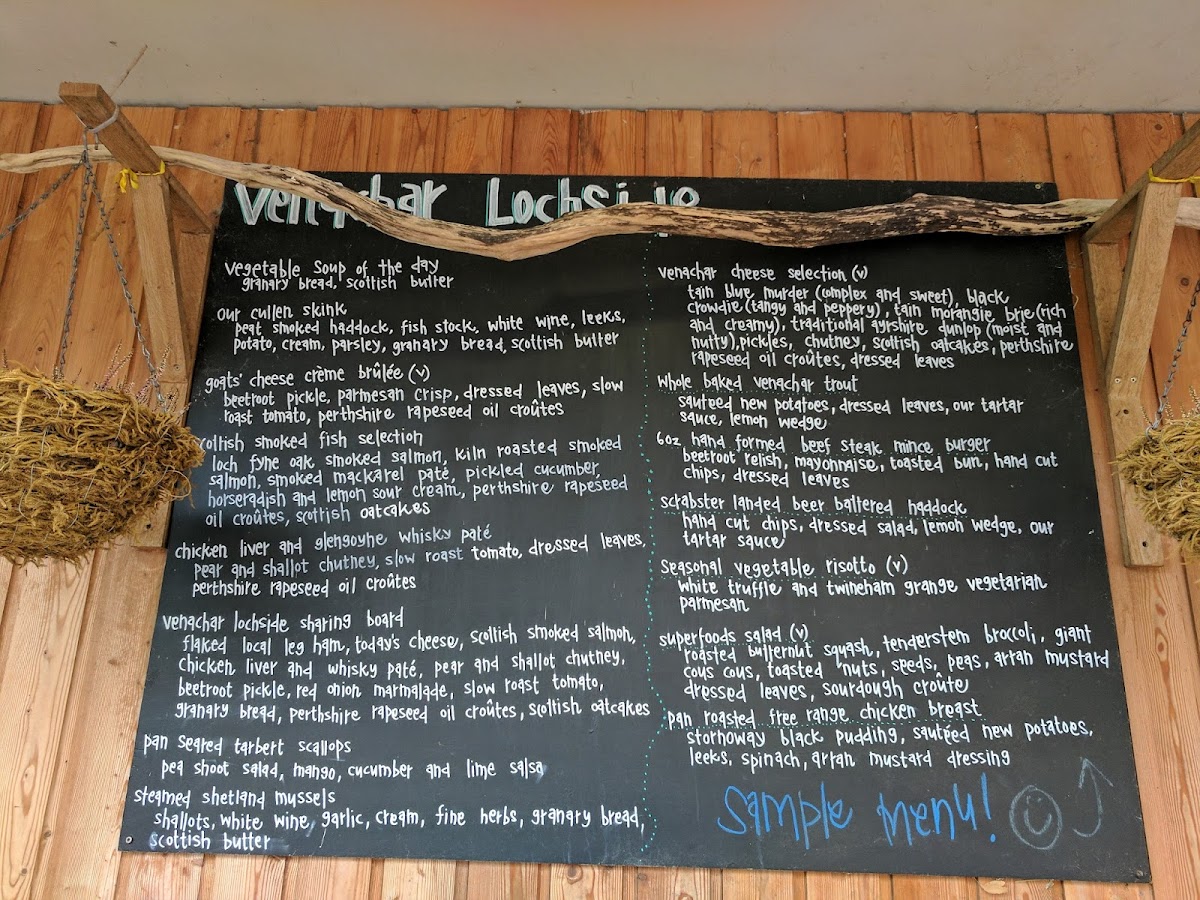 Venachar Lochside
vegetable soup of the day
granary bread, scottish butter
our cullen skink
peat smoked haddock, fish stock, white wine, leeks,
potato, cream, parsley, granary bread, scottish butter
goats' cheese crème brûlée (v)
beetroot pickle, parmesan crisp, dressed leaves, slow
roast tomato, perthshire rapeseed oil croûtes
scottish smoked fish selection
loch fyne oak smoked salmon, kiln roasted smoked
salmon, smoked mackarel paté, pickled cucumber,
horseradish and lemon sour cream, perthshire rapeseed
oil croûtes, scottish oatcakes
chicken liver and glengoyne whisky paté
pear and shallot chutney, slow roast tomato, dressed leaves,
perthshire rapeseed oil croûtes
venachar lochside sharing board
flaked local leg ham, today's cheese, scottish smoked salmon,
chicken liver and whisky paté, pear and shallot chutney,
beetroot pickle, red onion marmalade, slow roast tomato,
granary bread, perthshire rapeseed oil croûtes, scottish oatcakes
pan seared tarbert scallops
pea shoot salad, mango, cucumber and lime salsa
steamed shetland mussels
shallots, white wine, garlic, cream, fine herbs, granary bread,
scottish butter
venachar cheese selection (v)
tain blue murder (complex and sweet), black
crowdie (tangy and peppery), tain morangie brie (rich
and creamy), traditional ayrshire dunlop (moist and
nutty), pickles, chutney, scottish oatcakes, perthshire
rapeseed oil croûtes, dressed leaves
whole baked venachar trout
sauteed new potatoes, dressed leaves, our tartar
sauce, lemon wedge
6oz hand formed beef steak mince burger
beetroot relish, mayonnaise, toasted bun, hand cut
chips, dressed leaves
scrabster landed beer battered haddock
hand cut chips, dressed salad, lemon wedge, our
tartar sauce
seasonal vegetable risotto (v)
white truffle and twineham grange vegetarian
parmesan
superfoods salad (v)
roasted butternut squash, tenderstem broccoli, giant
cous cous, toasted nuts, seeds, peas, arran mustard
dressed leaves, sourdough croûte
pan roasted free range chicken breast
stornoway black pudding, sautéed new potatoes,
leeks, spinach, arran mustard dressing
Sample Menu!